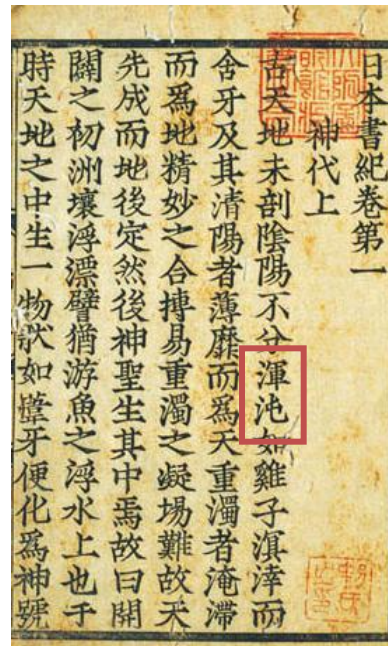 日本書紀卷第一
神代上
古天地未剖陰陽不分渾沌如雞子溟涬而
含牙及其清陽者薄靡而爲天重濁者淹滯
而爲地精妙之合摶易重濁之凝塲難故天
先成而地後定然後神聖生其中焉故曰開
闢之初洲壤浮漂譬猶游魚之浮水上也于
時天地之中生一物狀如葦牙便化爲神號